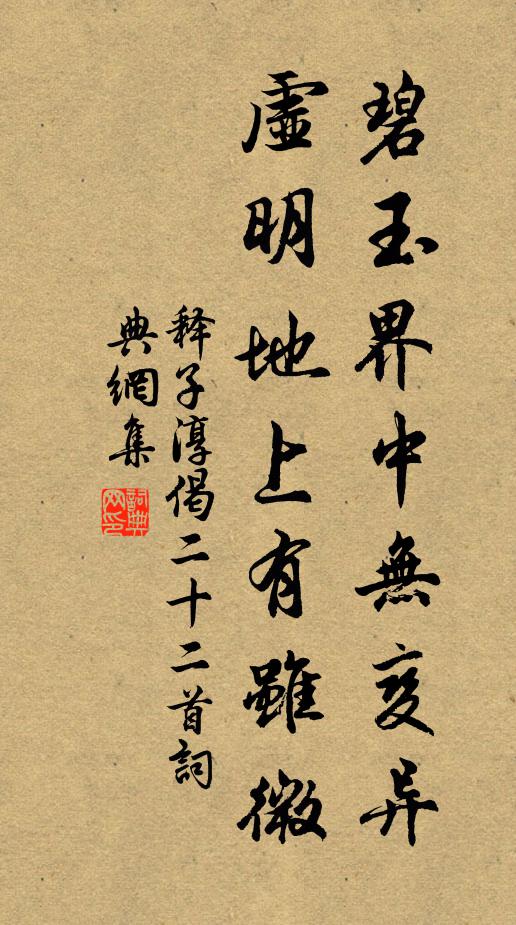 碧玉界中無变异
虚明地上有雖微
释子淳偈二十二首詞
典網集
詞典网印